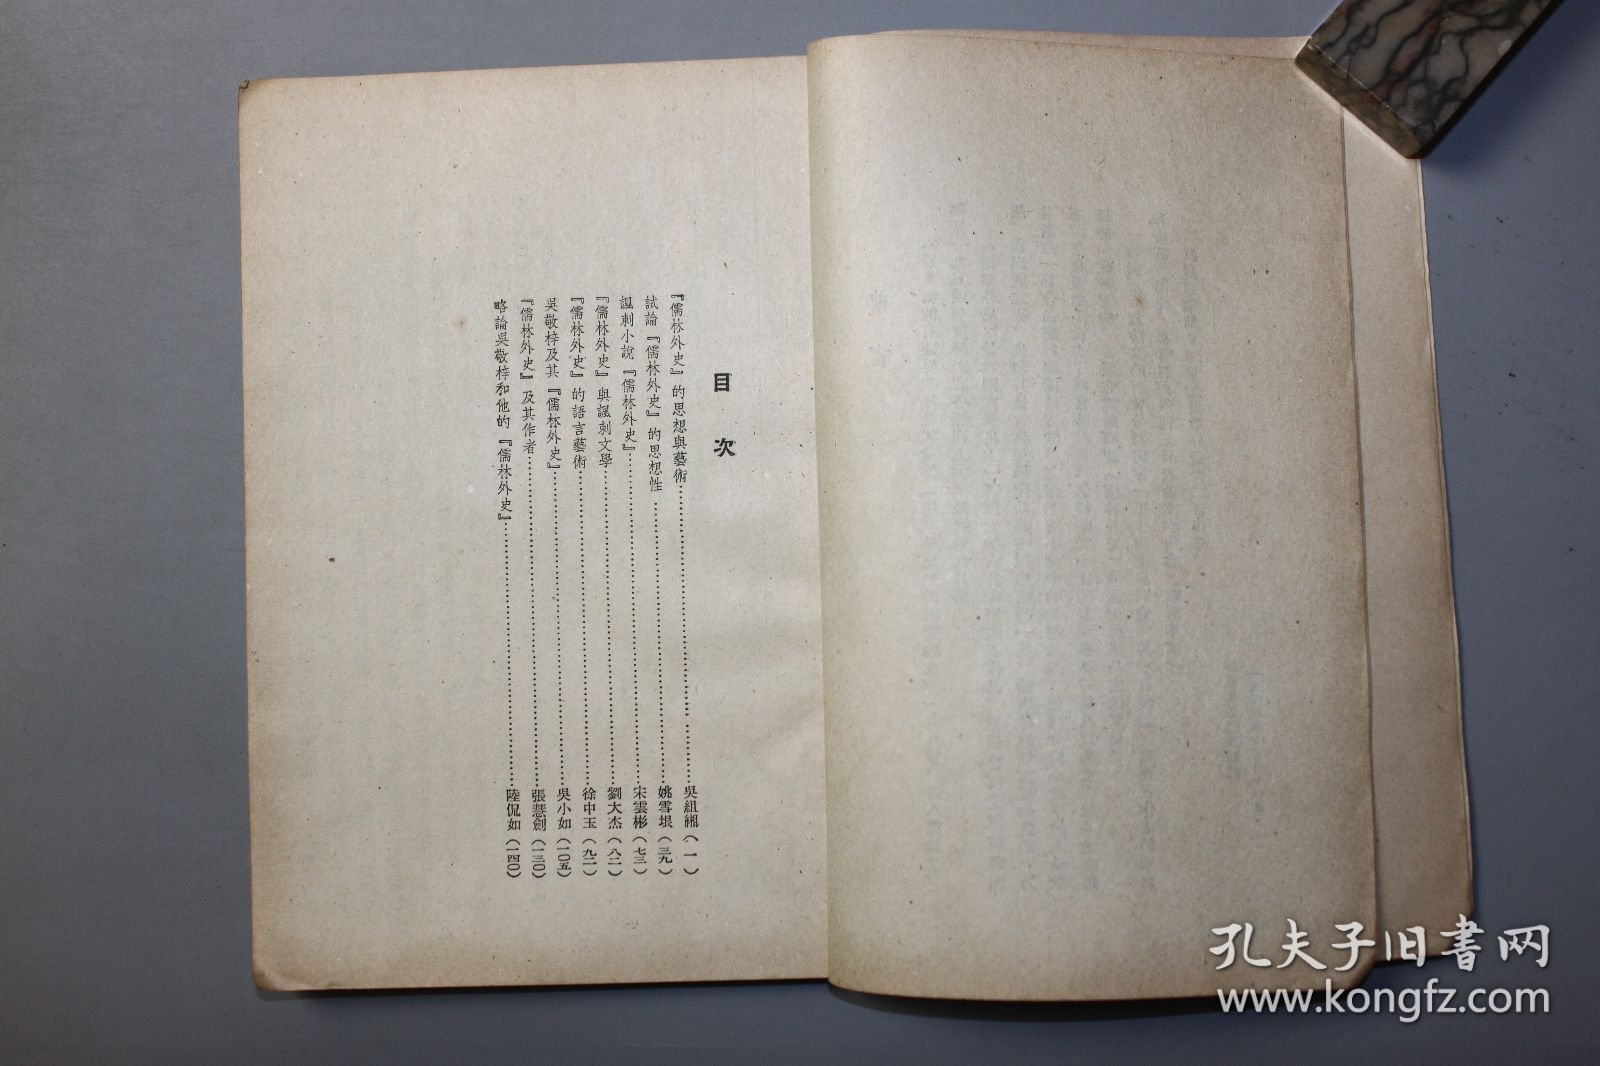 目次
『儒林外史』的思想與藝術……吳組緗（一）
試論『儒林外史』的思想性……姚雪垠（三九）
諷刺小說『儒林外史』……宋雲彬（七三）
『儒林外史』與諷刺文學……劉大杰（八二）
『儒林外史』的語言藝術……徐中玉（九二）
吳敬梓及其『儒林外史』……吳小如（一〇五）
『儒林外史』及其作者……張慧劍（一三〇）
略論吳敬梓和他的『儒林外史』……陸侃如（一四〇）
孔夫子旧書网
www.kongfz.com